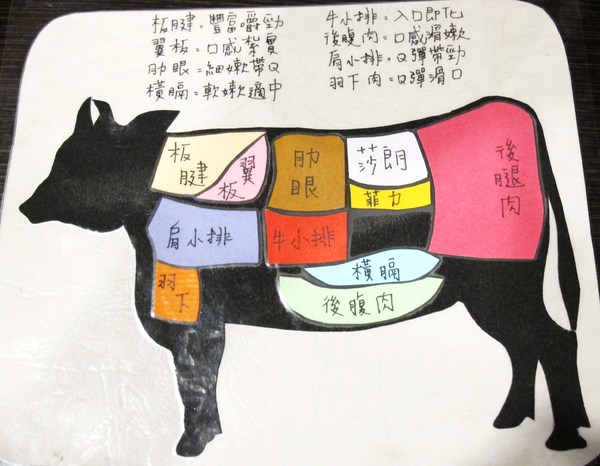 板腱=豐富嚼勁
翼板=口感紮實
肋眼=細嫩帶Q
橫膈=軟嫩適中
牛小排=入口即化
後腹肉=口感滑嫩
肩小排=Q彈帶勁
羽下肉=Q彈滑口
板腱
翼板
肋眼
莎朗
菲力
後腿肉
肩小排
牛小排
羽下
橫膈
後腹肉